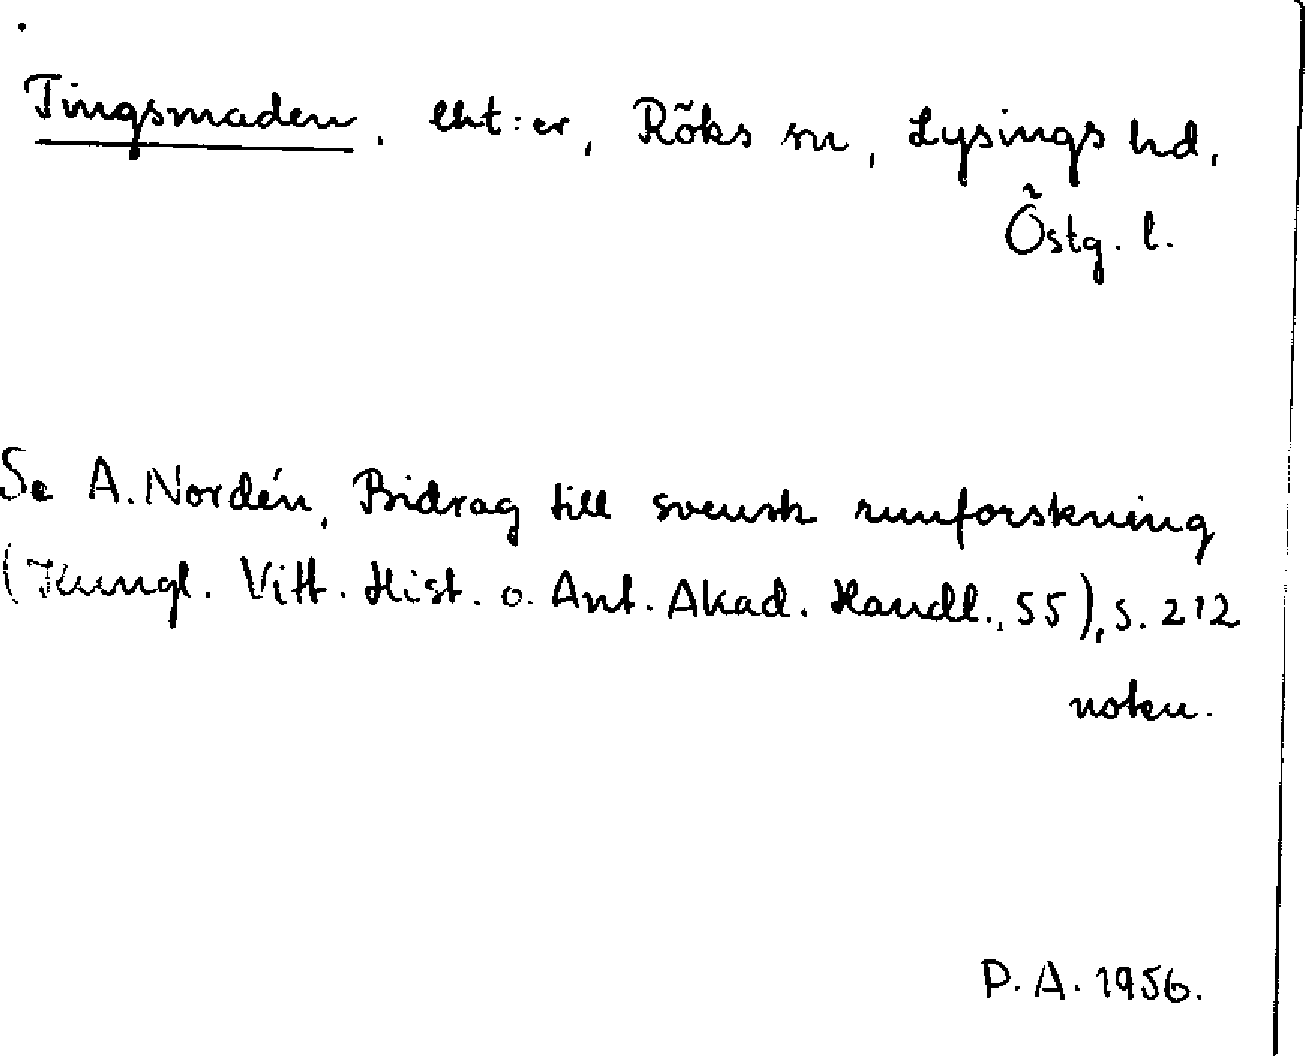 Tingsmaden, ekt:er, Röks sn, Lysings hd,
Östg. l.
Se A. Nordén, Bidrag till svensk runforskning
(Kungl. Vitt. Hist. o. Ant. Akad. Handl., 55), s. 212
noten.
P. A. 1956.